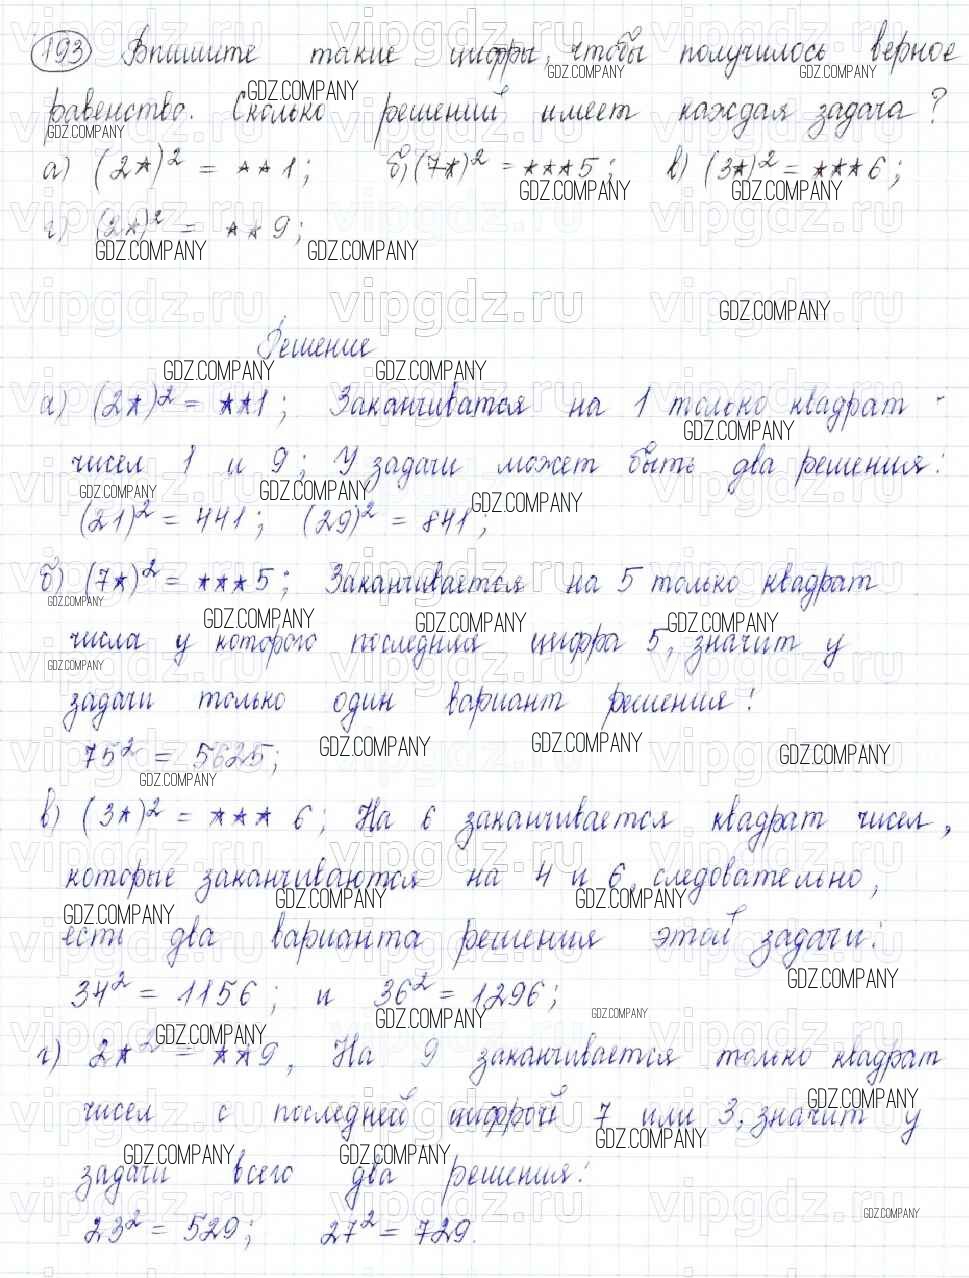 193 Впишите такие цифры, чтобы получилось верное
равенство. Сколько решений имеет каждая задача?
а) (2*)² = **1; б) (7*)² = ***5; в) (3*)² = ***6;
г) (2*)² = **9;
Решение
а) (2*)² = **1; Заканчиватся на 1 только квадрат
чисел 1 и 9; У задачи может быть два решения:
(21)² = 441; (29)² = 841;
б) (7*)² = ***5; Заканчивается на 5 только квадрат
числа у которого последняя цифра 5, значит у
задачи только один вариант решения:
75² = 5625;
в) (3*)² = *** 6; На 6 заканчивается квадрат чисел,
которые заканчиваются на 4 и 6, следовательно,
есть два варианта решения этой задачи:
34² = 1156; и 36² = 1296;
г) 2*² = **9, На 9 заканчивается только квадрат
чисел с последней цифрой 7 или 3, значит у
задачи всего два решения:
23² = 529; 27² = 729.
vipgdz.ru
GDZ.COMPANY